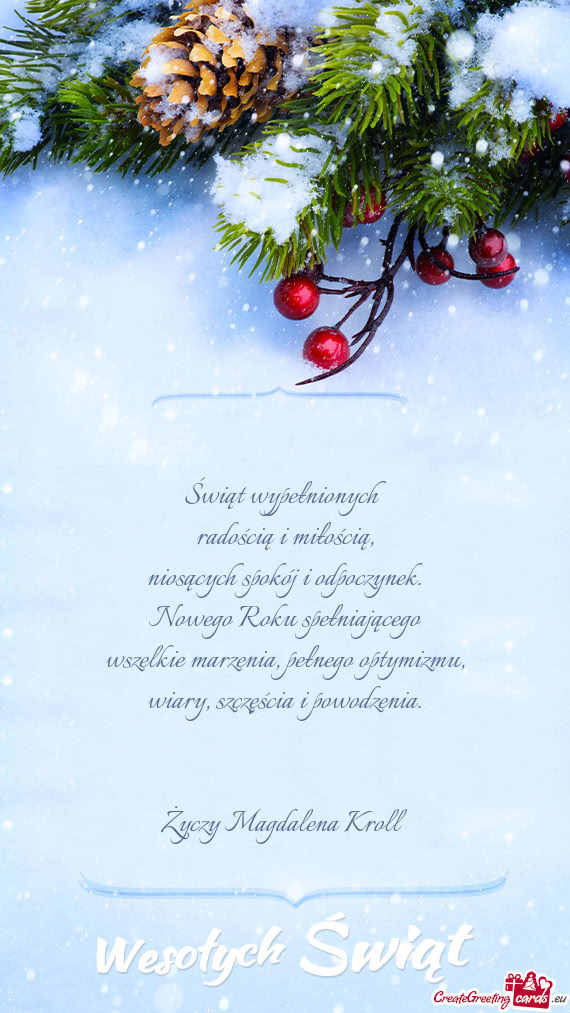 Świąt wypełnionych
radością i miłością,
niosących spokój i odpoczynek.
Nowego Roku spełniającego
wszelkie marzenia, pełnego optymizmu,
wiary, szczęścia i powodzenia.
Życzy Magdalena Kroll
Wesołych Świąt
CreateGreeting cards .eu